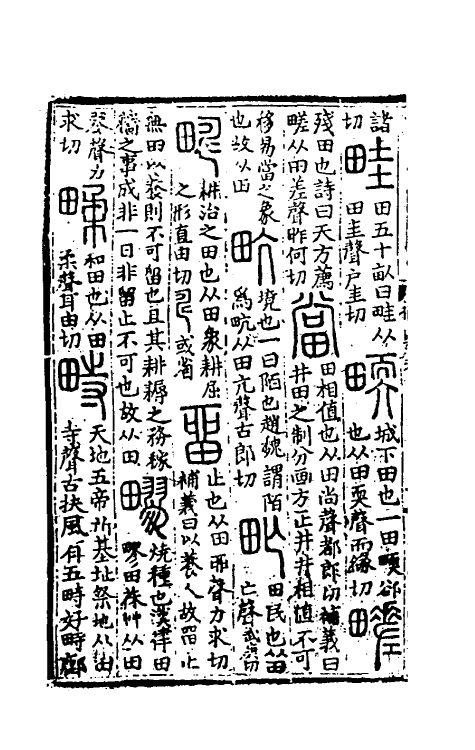 諸
切
畦
田五十畝曰畦从
田圭聲户圭切
𤲬
城下田也一曰𤲬卻
也从田耎聲而緣切
㽨
殘田也詩曰天方薦
㽨从田差聲昨何切
當
田相值也从田尚聲都郎切補義曰
井田之制分畫方正井井相值不可
移易當之象
也故从田
㽘
境也一曰陌也趙魏謂陌
為㽘从田亢聲古郎切
甿
田民也从田
亡聲武庚切
疇
耕治之田也从田象耕屈
之形直由切
或省
畱
止也从田丣聲力求切
補義曰以養人故畱止
無田以養則不可畱也且其耕耨之務稼
穡之事成非一日非畱止不可也故从田
疁
燒種也漢律曰
疁田茠艸从田
翏聲力
求切
㽥
和田也从田
柔聲耳由切
畤
天地五帝所基址祭地从田
寺聲古扶風有五畤好畤鄜